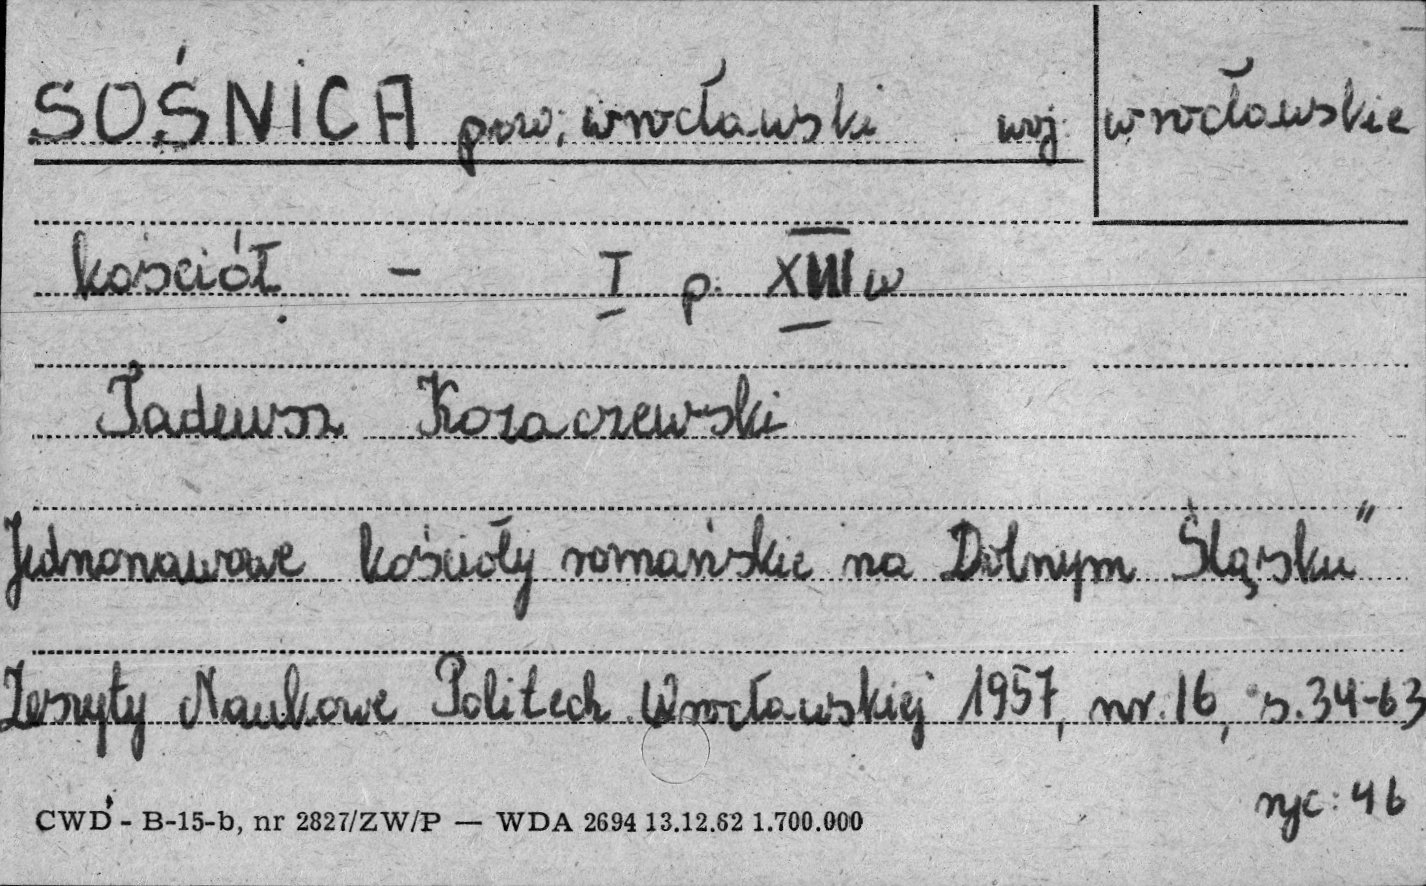 SOŚNICA pow. wrocławski woj. wrocławskie
kościół - I p. XIII w
Tadeusz Kozaczewski
Jednonawowe kościoły romańskie na Dolnym Śląsku"
Zeszyty Naukowe Politech. Wrocławskiej 1957, nr. 16, s. 34-63
ryc: 46
CWD - B-15-b, nr 2827/ZW/P — WDA 2694 13.12.62 1.700.000